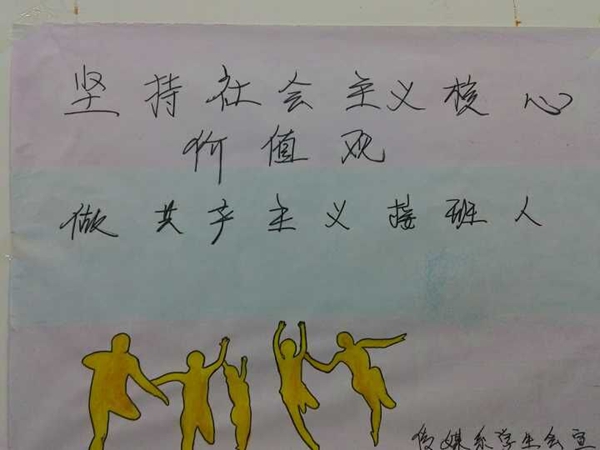 坚持社会主义核心
价值观
做共产主义接班人
传媒系学生会宣